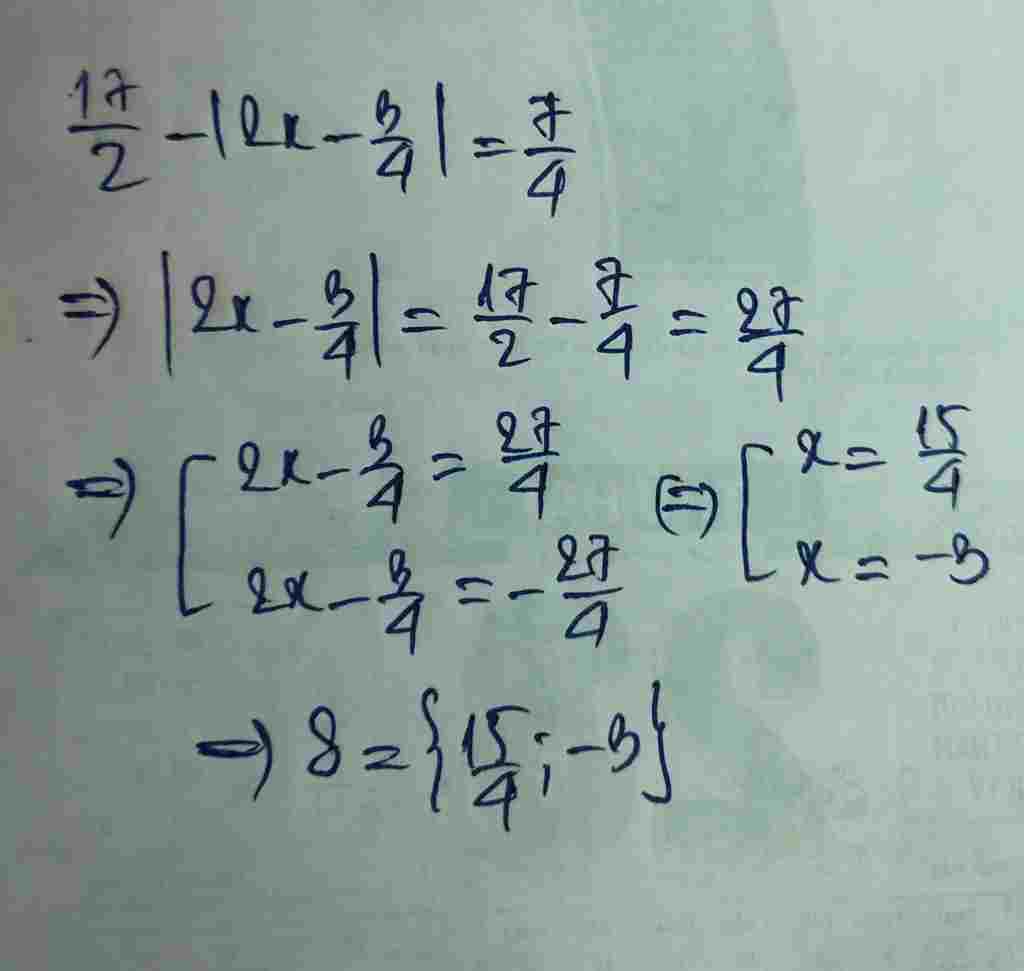 17/2 - |2x - 3/4| = 7/4
⇒ |2x - 3/4| = 17/2 - 7/4 = 27/4
⇒ [ 2x - 3/4 = 27/4 (=) [ x = 15/4
2x - 3/4 = -27/4 x = -3
⇒ S = {15/4; -3}